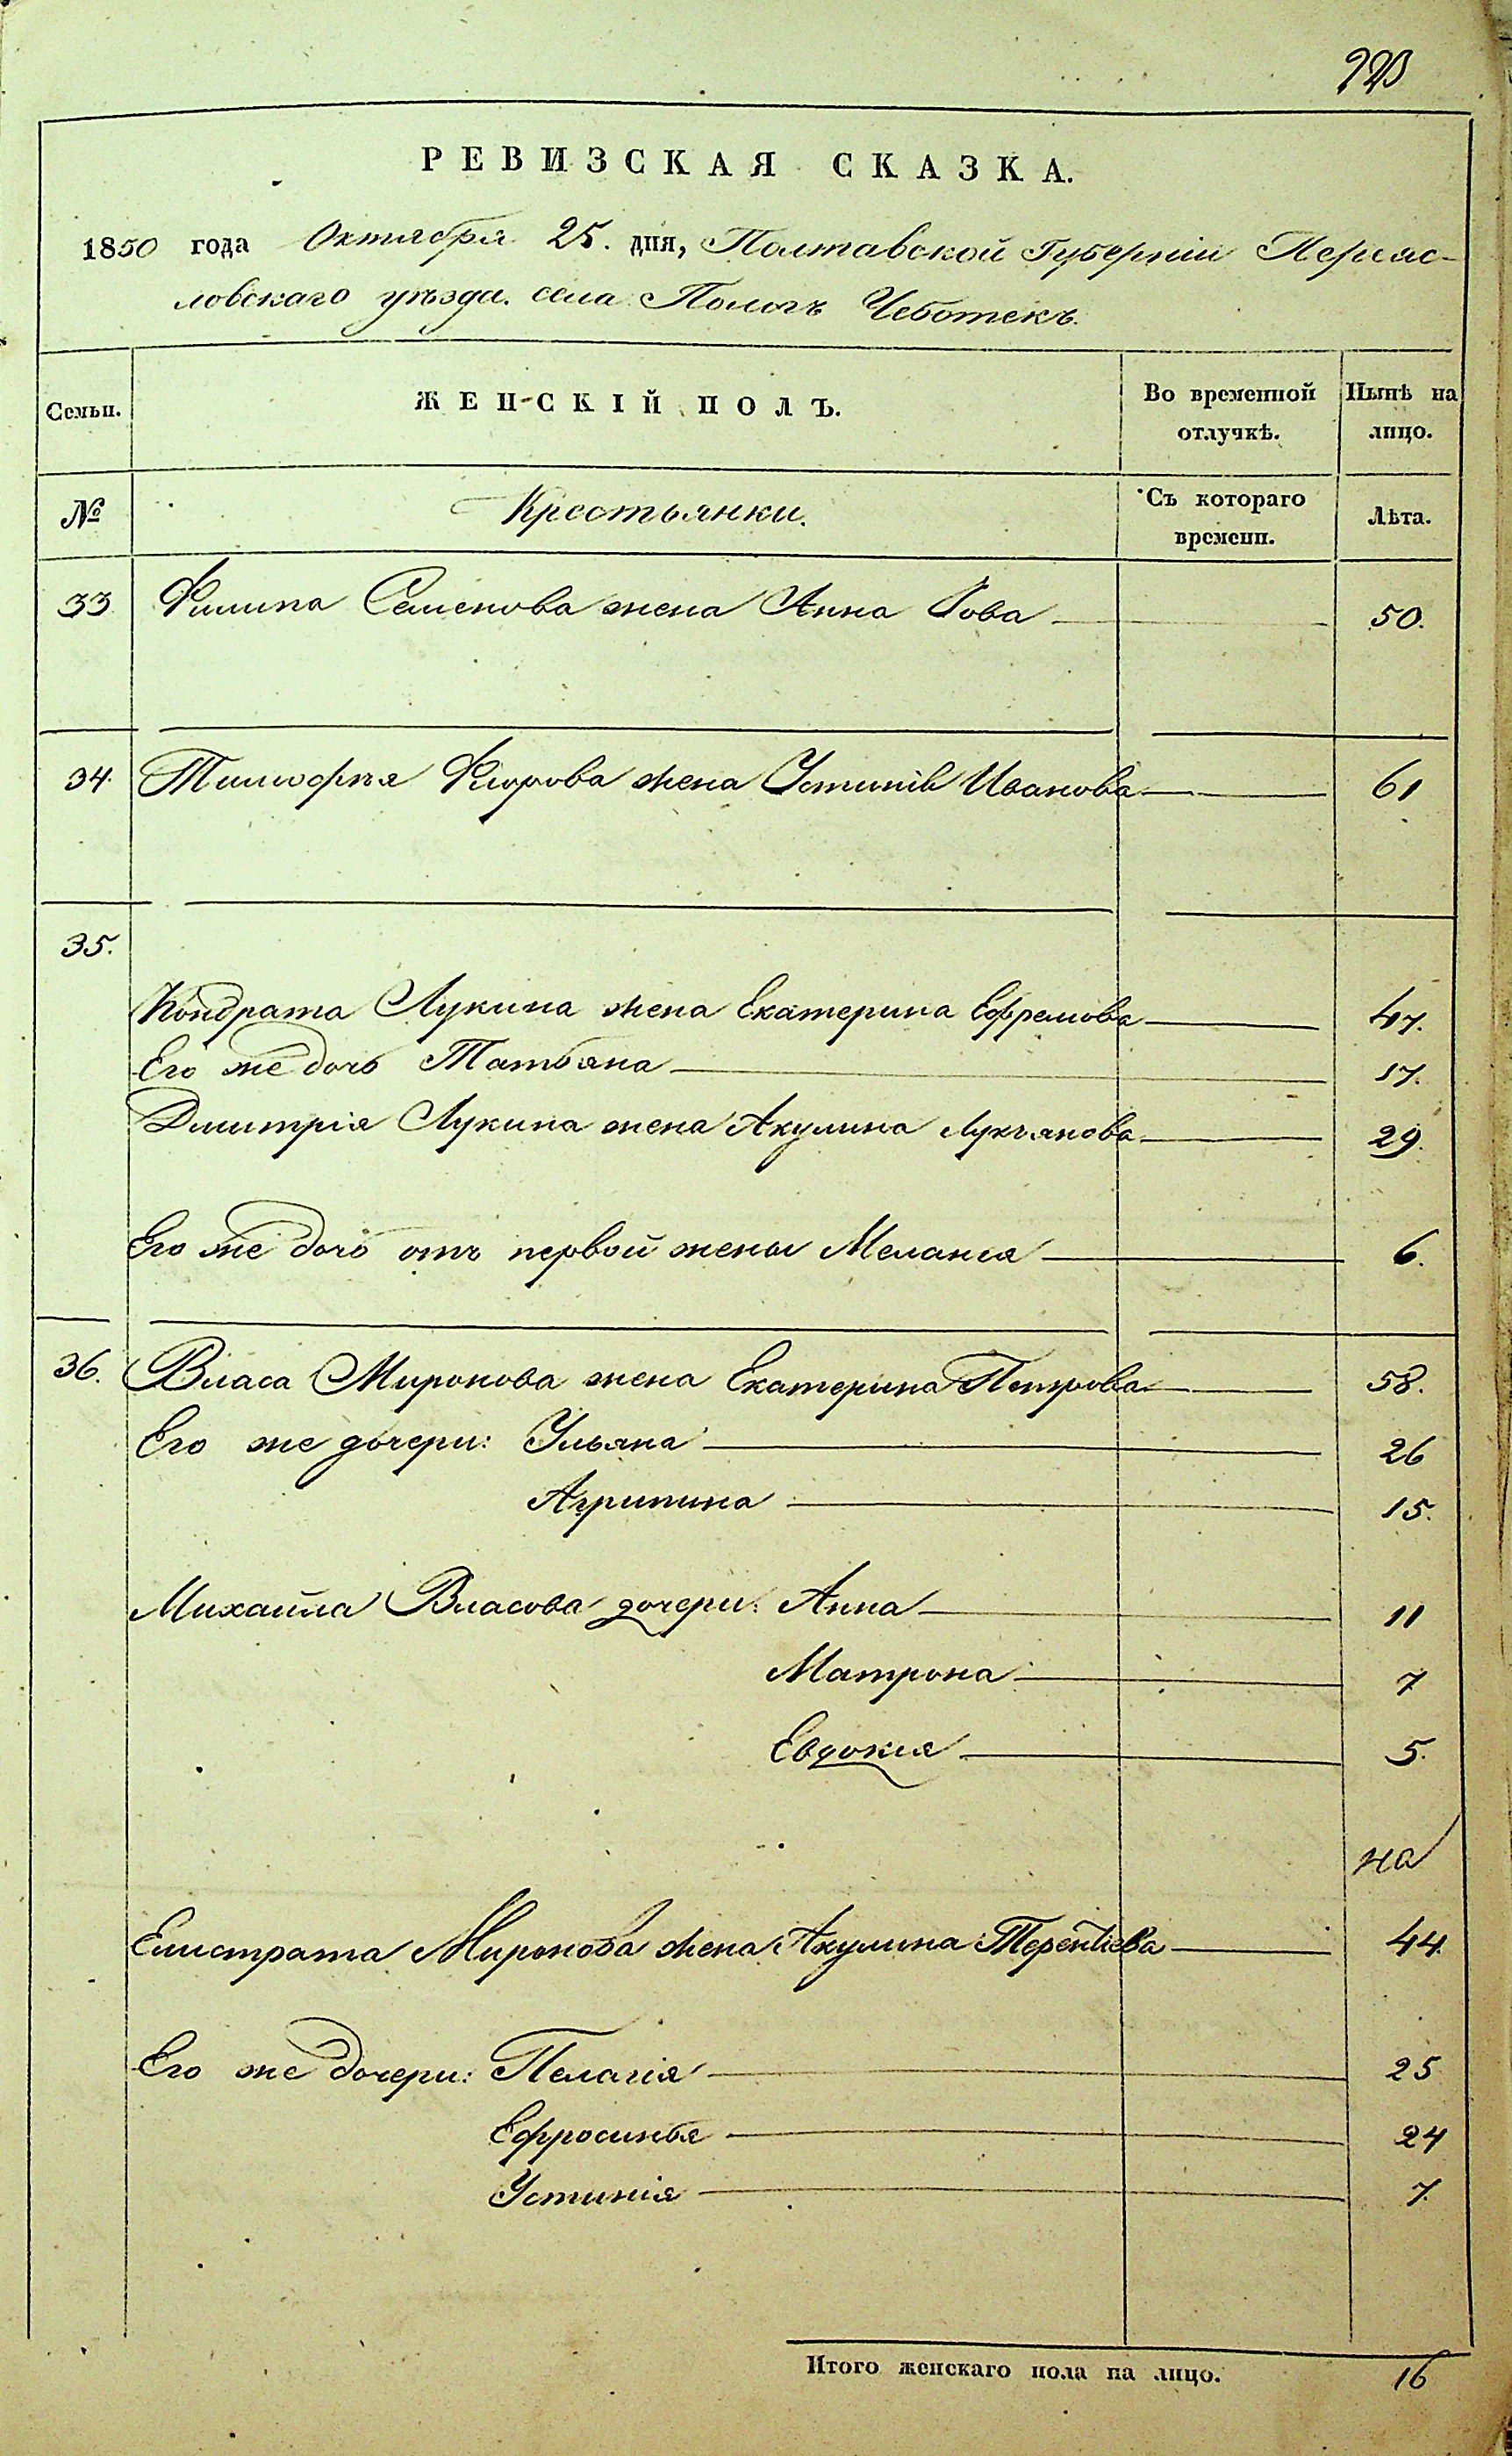 223
РЕВИЗСКАЯ СКАЗКА.
1850 года Октября 25. дня, Полтавской Губерніи Переяс-
ловскаго уѣзда. села Пологъ Чеботекъ.
Семьи. ЖЕНСКІЙ ПОЛЪ. Во временной отлучкѣ. Нынѣ на лицо.
№ Крестьянки. Съ котораго времени. Лѣта.
33 Филипа Семенова жена Анна 50.
34. Тимофѣя Флорова жена Устинія Иванова 61
35.
Кондрата Лукина жена Екатерина Ефремова 47.
Его же дочь Татьяна 17.
Дмитрія Лукина жена Акулина Лукъянова 29.
Его же дочь отъ первой жены Меланія 6.
36. Власа Миронова жена Екатерина Петрова 58.
Его же дочери: Ульяна 26
Агрипина 15.
Михайла Власова дочери: Анна 11
Матрона 7
Евдокия 5.
на
Елистрата Миронова жена Акулина Терентіева 44.
Его же дочери: Пелагія 25
Ефросинья 24
Устинія 7.
Итого женскаго пола на лицо. 16